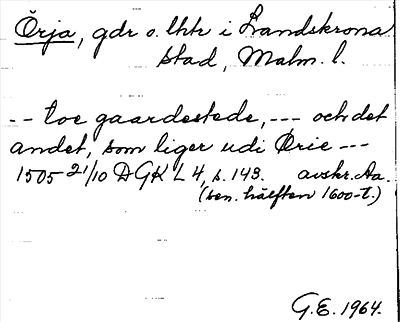 Örja, gdr o. lhhr i Landskrona
stad, Malm. l.
-- toe gaardestede, --- och det
andet, som liger udi Ørie ---
1505 21/10 DGK L 4, s. 143. avskr. Aa.
(sen. hälften 1600-t.)
G.E. 1964.